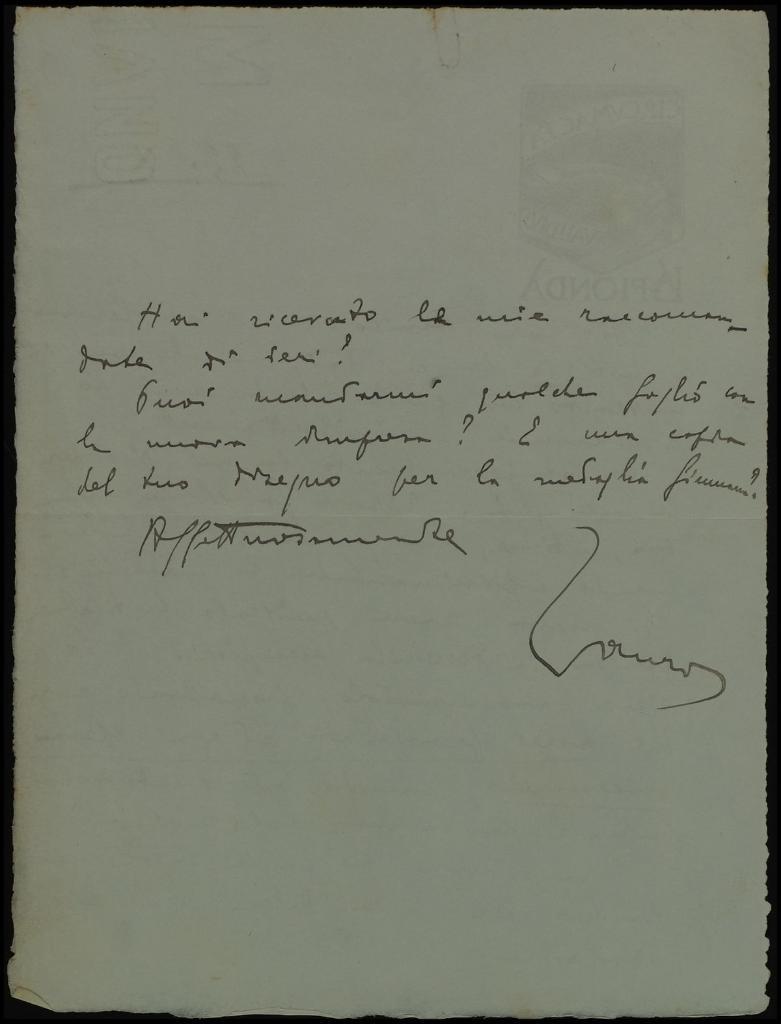 Hai ricevuto la mia raccoman-
data di ieri?
Puoi mandarmi qualche foglio con
la nuova impresa? E una copia
del tuo disegno per la medaglia
Affettuosamente
Lauro
LA FIONDA